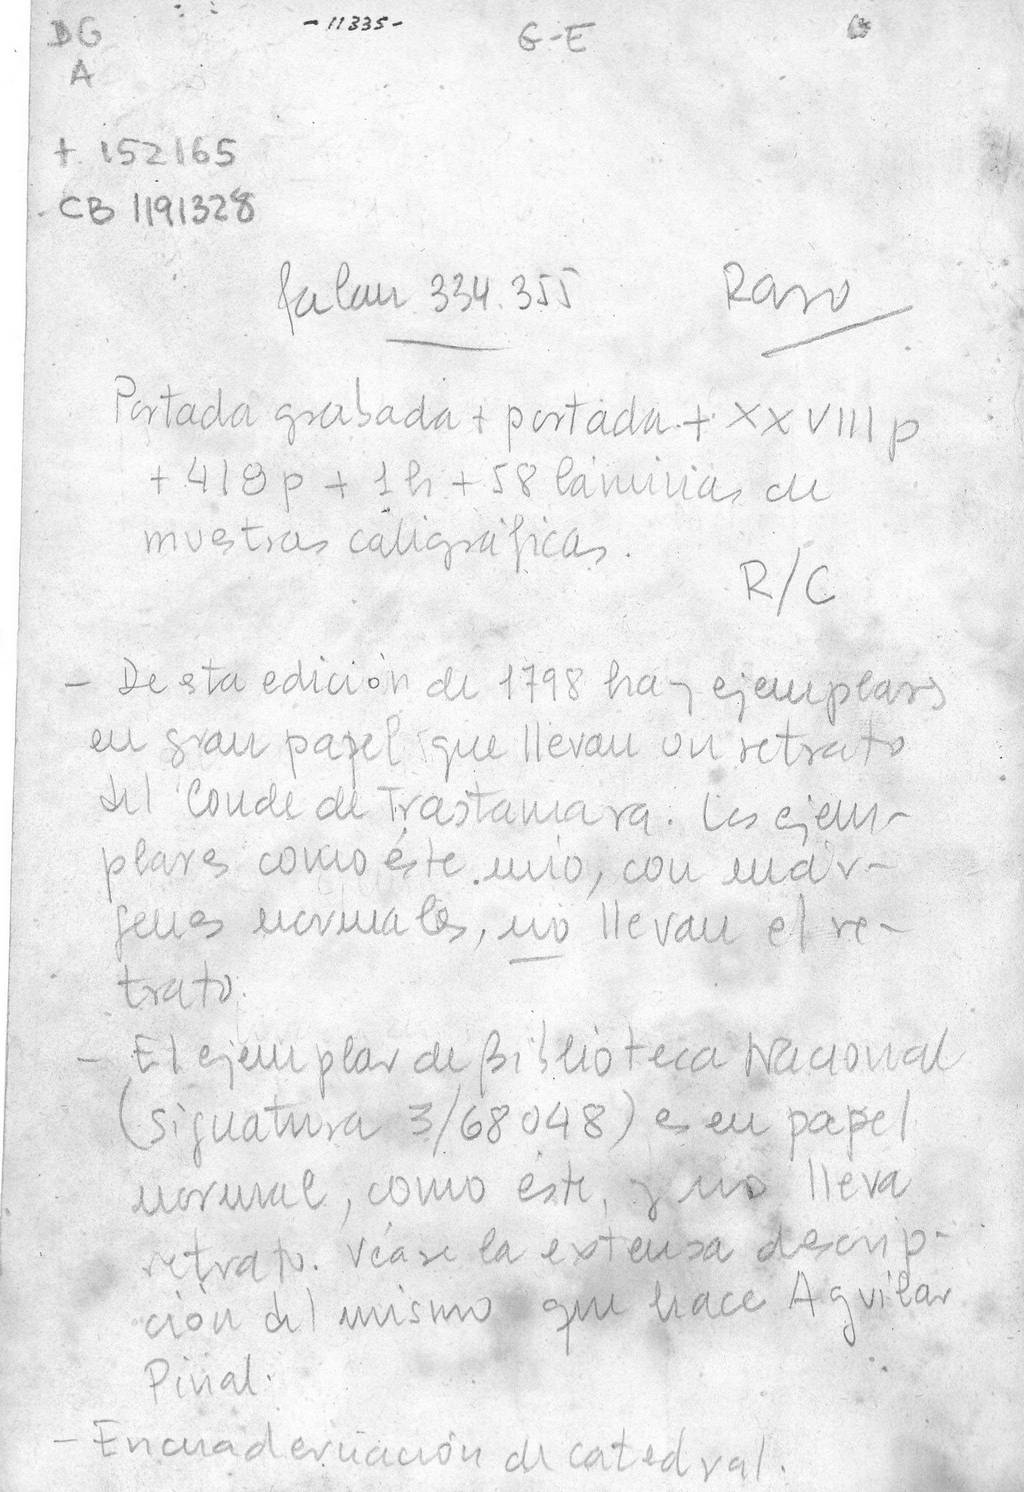 DG
- 11335 -
G-E
A
t. 152165
CB 1191328
Palau 334.355
Raro
Portada grabada + portada + XXVIII p
+ 419 p + 1 h + 58 láminas de
muestras caligráficas.
R/C
- De esta edición de 1798 hay ejemplares
en gran papel que llevan un retrato
del Conde de Trastamara. Los ejem-
plares como éste mío, con már-
genes normales, no llevan el re-
trato.
- El ejemplar de Biblioteca Nacional
(signatura 3/68048) es en papel
normal, como éste, y no lleva
retrato. Véase la extensa descrip-
ción del mismo que hace Aguilar
Piñal.
- Encuadernación de catedral.